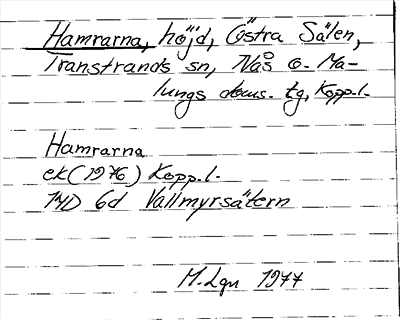 Hamrarna, höjd, Östra Sälen,
Transtrands sn, Nås o. Ma-
lungs doms. tg, Kopp.l.
Hamrarna
ek (1976) Kopp.l.
14D 6d Vallmyrsätern
M.Lgn 1977